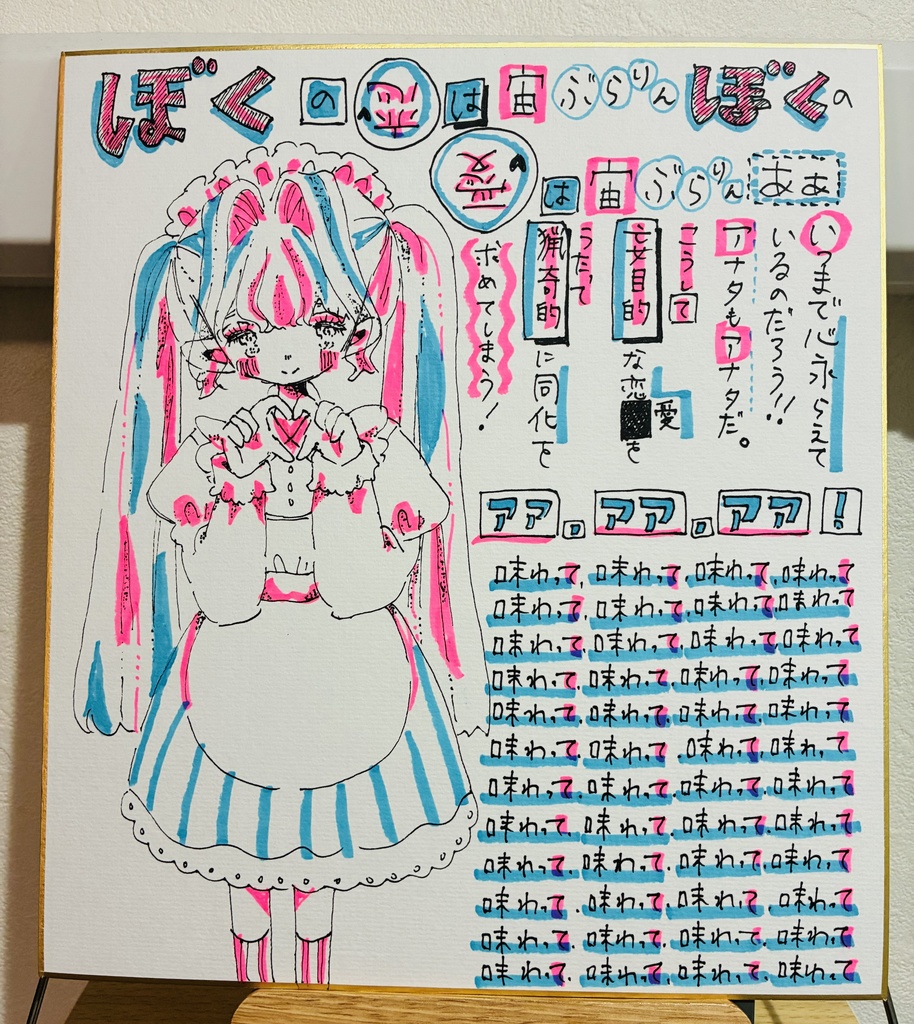 ぼくの恋は宙ぶらりんぼくの
愛は宙ぶらりんああ
いつまで心永らえて
いるのだろう!!
アナタもアナタだ。
こうして
妄目的な恋愛を
うたって
猟奇的に同化を
求めてしまう!
アア。アア。アア!
味わって.味わって.味わって.味わって
味わって.味わって.味わって.味わって
味わって.味わって.味わって.味わって
味わって.味わって.味わって.味わって
味わって.味わって.味わって.味わって
味わって.味わって.味わって.味わって
味わって.味わって.味わって.味わって
味わって.味わって.味わって.味わって
味わって.味わって.味わって.味わって
味わって.味わって.味わって.味わって
味わって.味わって.味わって.味わって
味わって.味わって.味わって.味わって